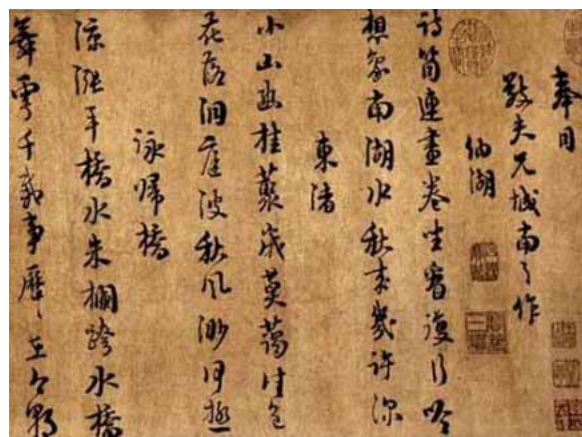 奉同
敬夫兄城南之作
納湖
詩筒連畫卷坐看復行吟
想象南湖水秋来幾許深
東渚
小山幽桂叢歲莫藹佳色
花落洞庭波秋風渺何極
詠歸橋
綠漲平橋水朱欄跨水橋
舞雩千載事歷〻在今朝